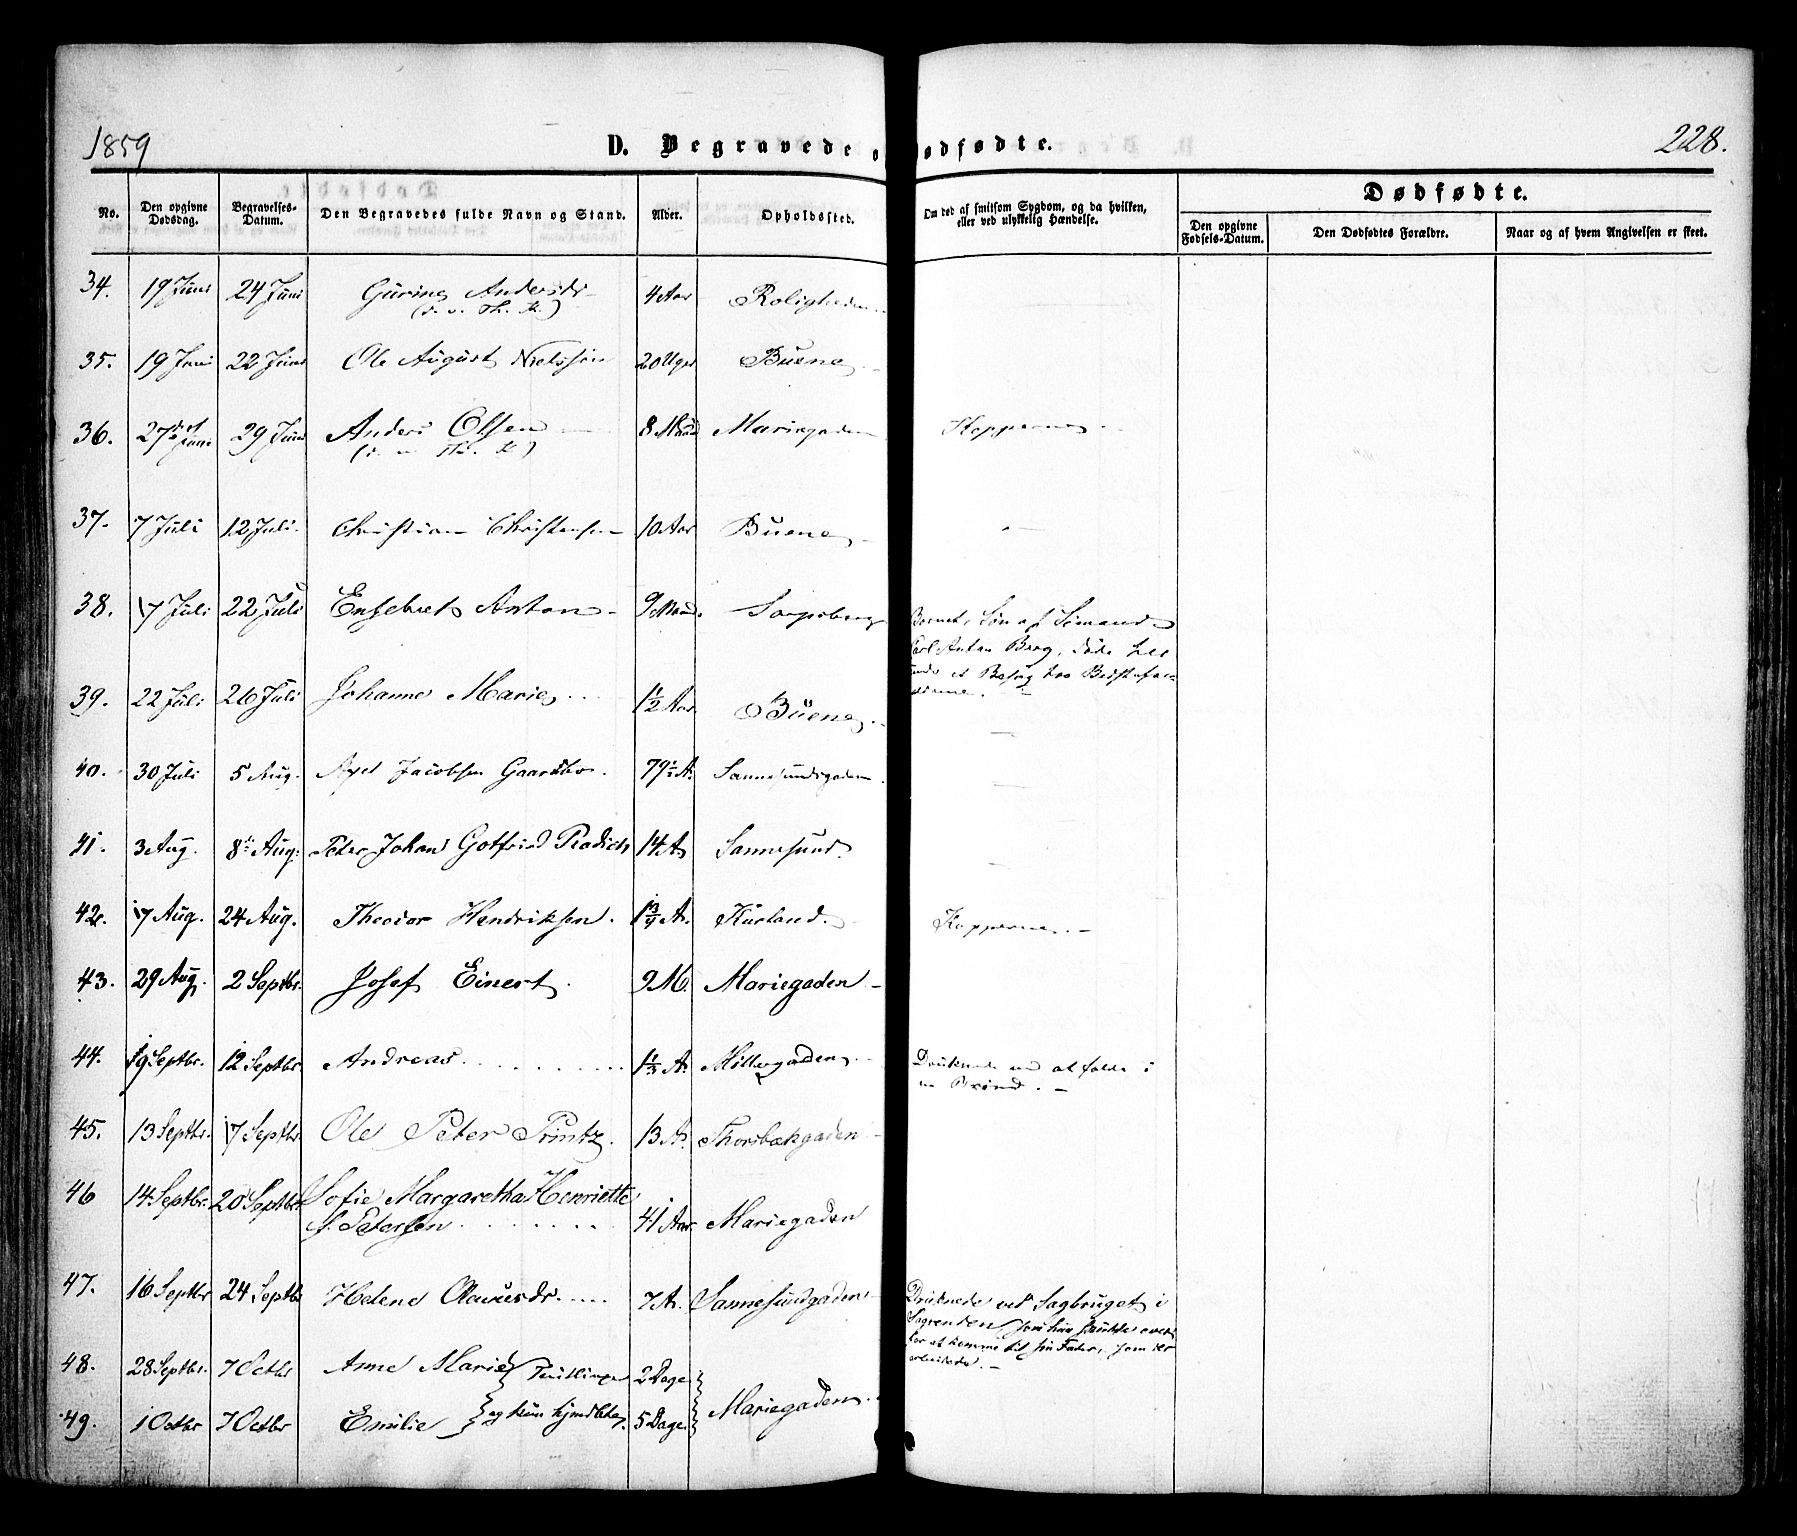 1859
D. Begravede o
ødfødte.
228.
No.
Den opgivne Dødsdag.
Begravelses-Datum.
Den Begravedes fulde Navn og Stand.
Alder.
Opholdssted.
Om død af smitsom Sygdom, og da hvilken,
eller ved ulykkelig Hændelse.
Dødfødte.
Den opgivne Fødsels-Datum.
Den Dødfødtes Forældre.
Naar og af hvem Angivelsen er skeet.
34. 19 Juni 24 Juni Gurine Andersdr 4 Aar Roligheden
35. 19 Juni 22 Juni Ole August Nielssøn 20 Uger Buene
36. 27 Juni 29 Juni Anders Olsen 8 Maan Mariegaden Kopperne
37. 7 Juli 12 Juli. Christian Christensen 10 Aar Buene
38. 17 Juli 22 Juli Ensebret Anton 9 Maan. Sarpsborg Barnet, Søn af Sømand
Carl Anton Berg, døde her
under et Besøg hos Bedstefor-
ældrene.
39. 22 Juli 26 Juli Johanne Marie 1½ Aar Buene
40. 30 Juli 5 Aug. Axel Jacobsen Gaardbo. 79½ A. Sannesundsgaden
41. 3 Aug. 8 Aug: Peter Johan Gotfried Radich 14 A Sannesund.
42. 17 Aug. 24 Aug. Theodor Hendriksen. 1¾ A. Kurland. Kopperne.
43. 29 Aug. 2 Septbr. Josef Einert. 9 M. Mariegaden
44. 9 Septbr. 12 Septbr. Andreas 1½ A. Møllergaden Druknede ved at falde i
en Brønd.
45. 13 Septbr. 17 Septbr. Ole Peter Printz. 13 A. Thorsbækgaden
46 14 Septbr. 20 Septbr. Sofie Margaretha Henriette
f. Petersen 41 Aar Mariegaden
47. 16 Septbr 24 Septbr Helene Olausdr. 7 A. Sannesundgaden Druknede ved Sagbruget i
Sagrenden, som hun skulde over
for at komme til sin Fader, som der
arbeidede.
48. 28 Septbr. 7 Octbr Anne Marie Tvillinger 2 Dage
49. 1 Octbr 7 Octbr Emilie og kun hjemdøbte. 5 Dage Mariegaden.